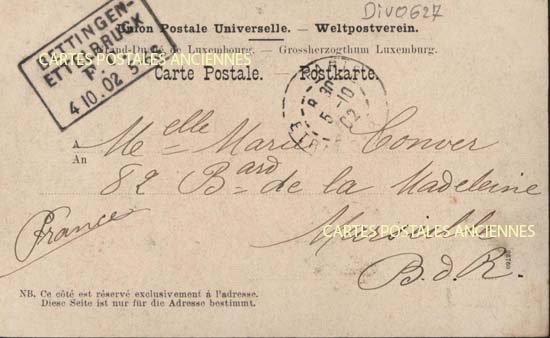 DIV0627
Union Postale Universelle. — Weltpostverein.
Grand-Duché de Luxembourg. — Grossherzogthum Luxemburg.
Carte Postale. — Postkarte.
OETTINGEN-
ETTELBRUCK
4 10. 02
5-10
02
CARTES POSTALES ANCIENNES
A
An
Melle Marie Conver
82 Bard de la Madeleine
CARTES POSTALES ANCIENNES
Marseille
France
B. d. R.
NB. Ce côté est réservé exclusivement à l'adresse.
Diese Seite ist nur für die Adresse bestimmt.